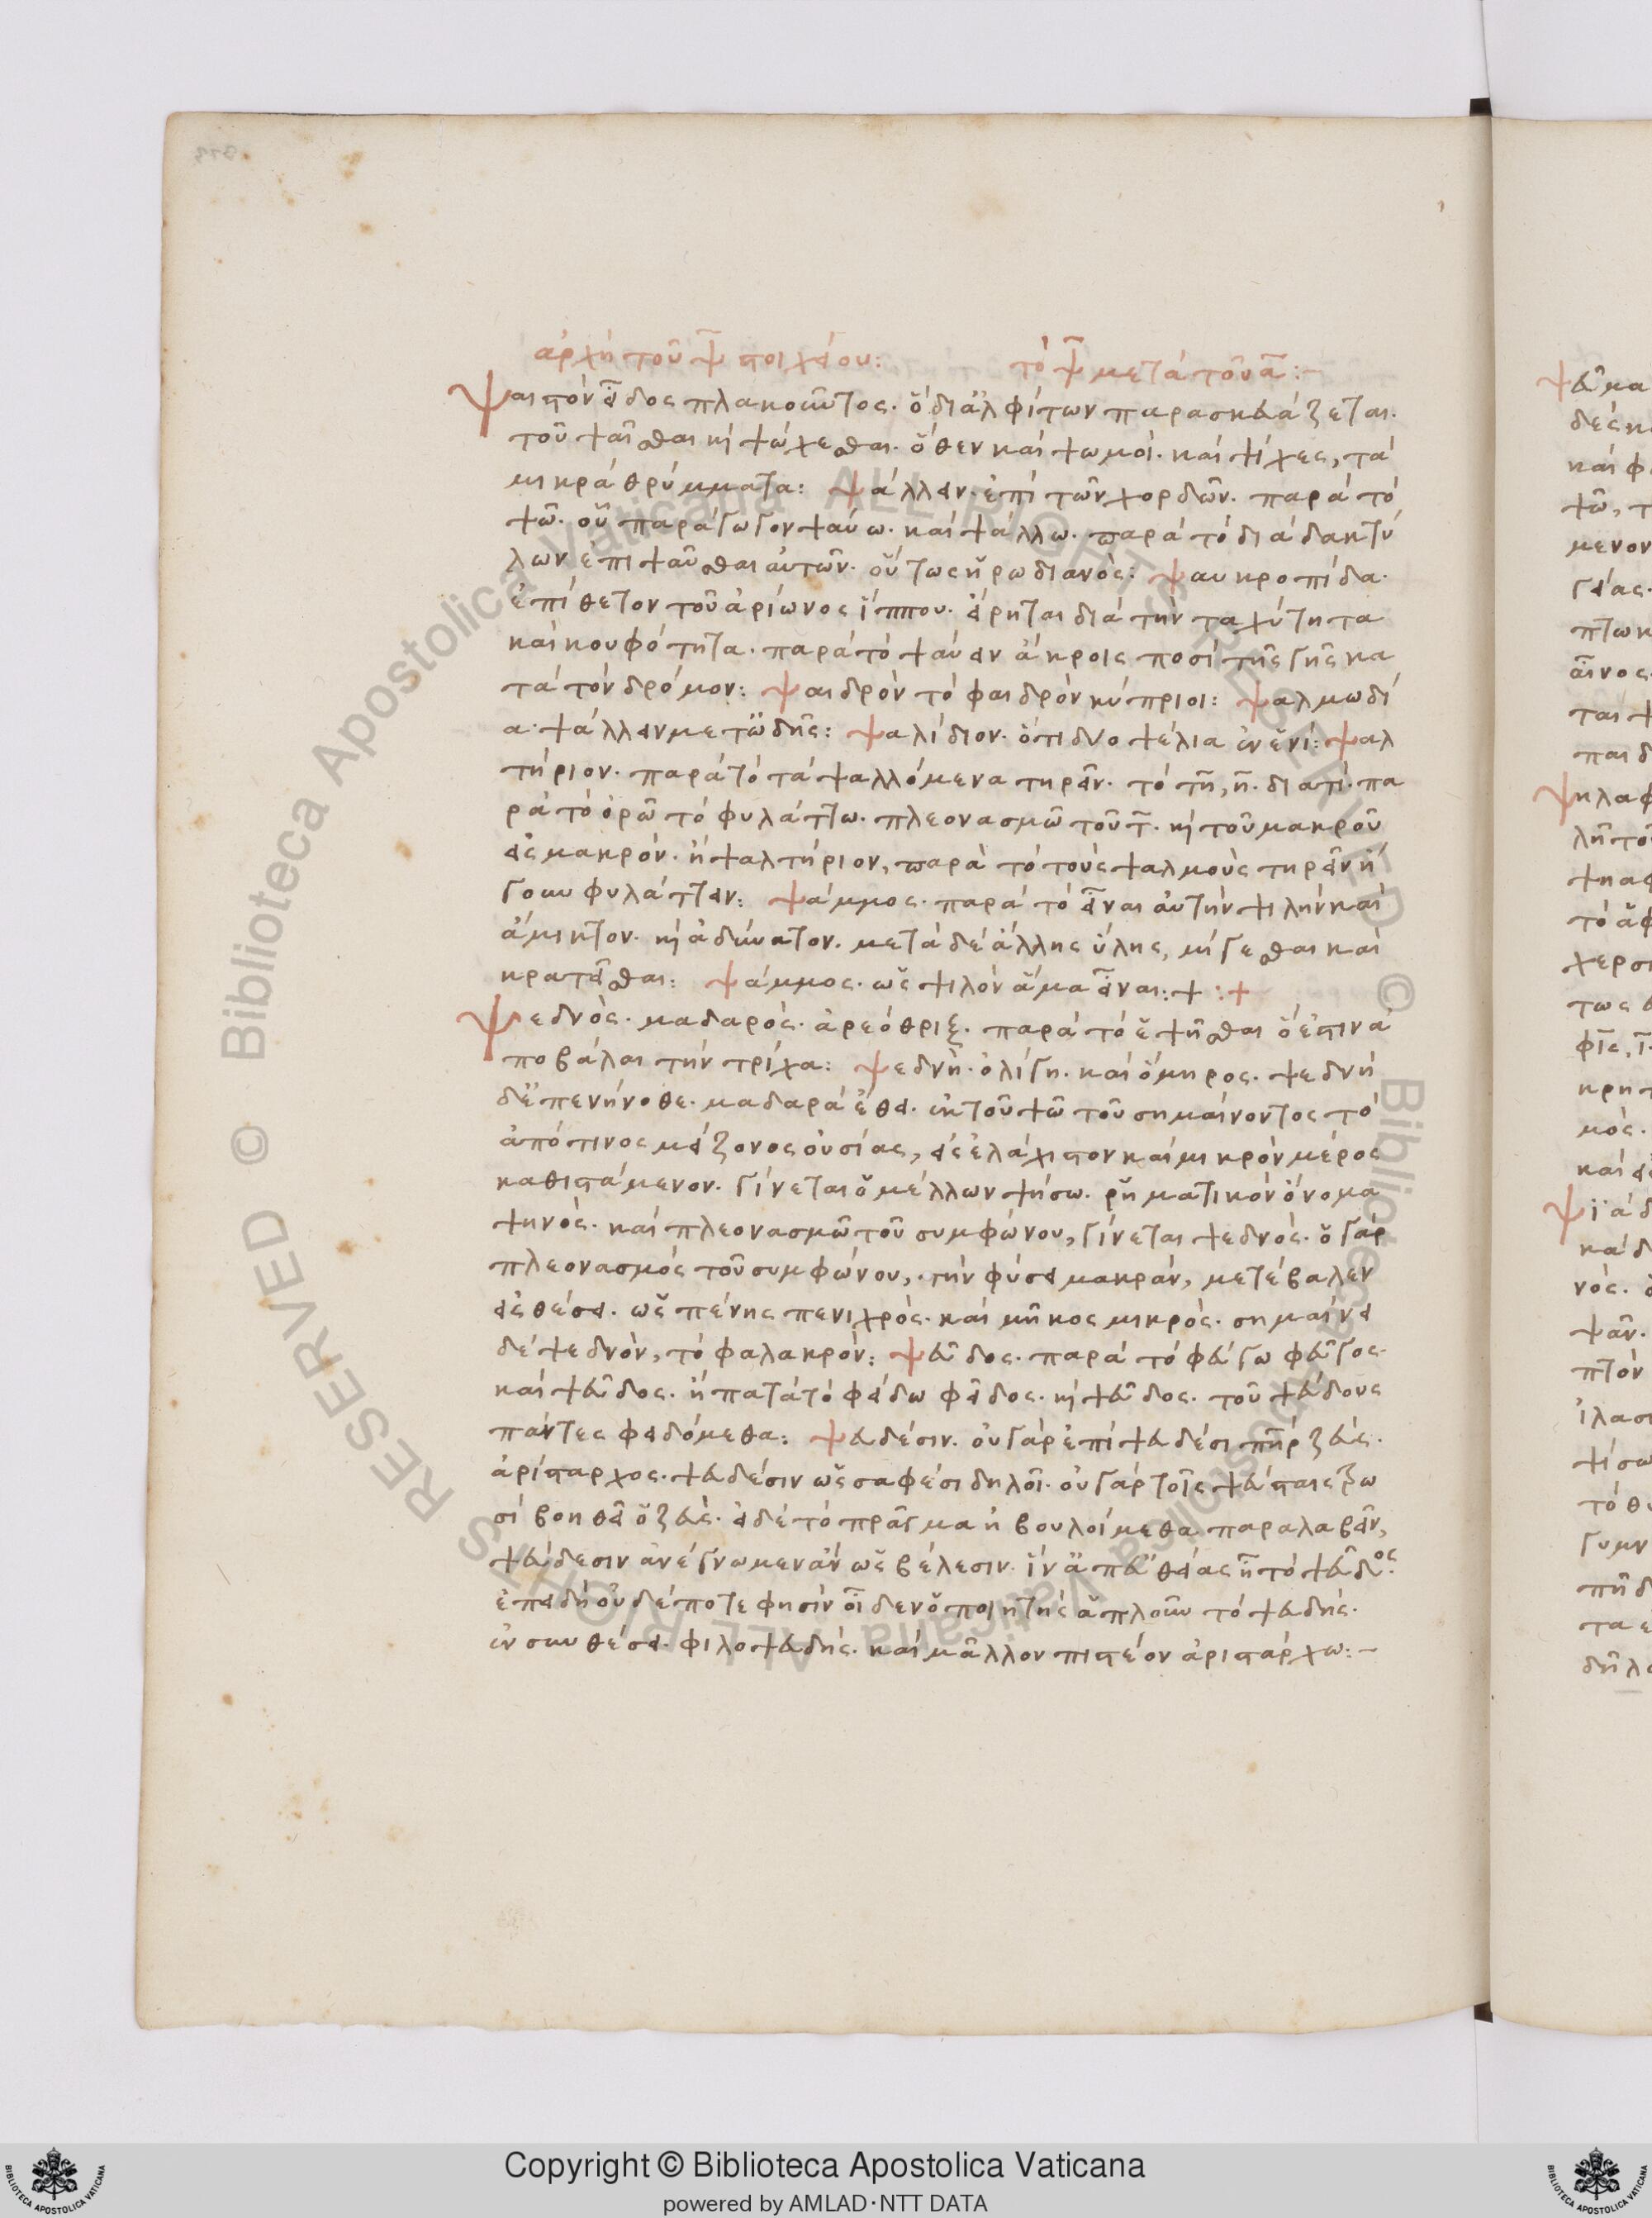 ἀρχὴ τοῦ ψ στοιχείου: τὸ ψ μετὰ τοῦ α:-
Ψαιστὸν εἶδος πλακοῦντος. ὃ δι' ἀλφίτων παρασκευάζεται.
τοῦ ψαῖσθαι καὶ ψώχεσθαι. ὅθεν καὶ ψωμοί. καὶ ψίχες, τὰ
μικρὰ θρύμματα: ψάλλειν. ἐπὶ τῶν χορδῶν. παρὰ τὸ
ψῶ. οὗ παράγωγον ψαύω. καὶ ψάλλω. παρὰ τὸ διὰ δακτύ
λων ἐπιψαῦσθαι αὐτῶν. οὕτως ἡρωδιανός: ψαυκροπίδα.
ἐπίθετον τοῦ ἀρίωνος ἵππου. εἴρηται διὰ τὴν ταχύτητα
καὶ κουφότητα. παρὰ τὸ ψαύειν ἄκροις ποσὶ τῆς γῆς κα
τὰ τὸν δρόμον: ψαιδρὸν τὸ φαιδρὸν κύπριοι: ψαλμωδί
α. ψάλλειν μετ' ὠδῆς: ψαλίδιον. ὅτι δύο ψέλια ἐν ἑνί: ψαλ
τήριον. παρὰ τὸ τὰ ψαλλόμενα τηρεῖν. τὸ τη, η. διατί. πα
ρὰ τὸ ὁρῶ τὸ φυλάττω. πλεονασμῶ τοῦ τ. καὶ τοῦ μακροῦ
εἰς μακρόν. ἢ ψαλτήριον, παρὰ τὸ τοὺς ψαλμοὺς τηρεῖν ἤ
γουν φυλάττειν: ψάμμος. παρὰ τὸ εἶναι αὐτὴν ψιλὴν καὶ
ἄμικτον. καὶ ἀδύνατον. μετὰ δὲ ἄλλης ὕλης, μίγεσθαι καὶ
κρατεῖσθαι: ψάμμος. ὡς ψιλὸν ἅμα εἶναι:+ :+
Ψεδνός. μαδαρός. ἀρεόθριξ. παρὰ τὸ ἐψῆσθαι ὅ ἐστιν ἀ
ποβάλαι τὴν τρίχα: ψεδνή. ὀλίγη. καὶ ὅμηρος. ψεδνὴ
δ' ἐπενήνοθε. μαδαρὰ ἔθει. ἐκ τοῦ ψῶ τοῦ σημαίνοντος τὸ
ἀπό τινος μείζονος οὐσίας, εἰς ἐλάχιστον καὶ μικρὸν μέρος
καθιστάμενον. γίνεται ὁ μέλλων ψήσω. ῥηματικὸν ὄνομα
ψηνός. καὶ πλεονασμῶ τοῦ συμφώνου, γίνεται ψεδνός. ὁ γὰρ
πλεονασμὸς τοῦ συμφώνου, τὴν φύσει μακράν, μετέβαλεν
εἰς θέσει. ὡς πένης πενιχρός. καὶ μῆκος μικρός. σημαίνει
δὲ ψεδνὸν, τὸ φαλακρόν: ψεῦδος. παρὰ τὸ φεύγω φεῦγος.
καὶ ψεῦδος. ἢ πατὰ τὸ φείδω φεῖδος. καὶ ψεῦδος. τοῦ ψεύδους
πάντες φειδόμεθα: ψευδέσιν. οὐ γὰρ ἐπὶ ψευδέσι πατὴρ ζεύς.
ἀρίσταρχος. ψευδέσιν ὡς σαφέσι δηλοῖ. οὐ γὰρ τοῖς ψεύσταις τρω
σὶ βοηθεῖ ὁ ζεύς. εἰ δὲ τὸ πρᾶγμα ἠβουλοίμεθα παραλαβεῖν,
ψεύδεσιν ἀνέγνωμεν ἂν ὡς βέλεσιν. ἵν' ἀπ' εὐθείας ἦ τὸ ψεῦδος.
ἐπειδὴ οὐδέποτε φησὶν οἶδεν ὁ ποιητὴς ἁπλοῦν τὸ ψευδής.
ἐν συνθέσει. φιλοψευδής. καὶ μᾶλλον πιστέον ἀριστάρχω:-
Copyright © Biblioteca Apostolica Vaticana
powered by AMLAD·NTT DATA